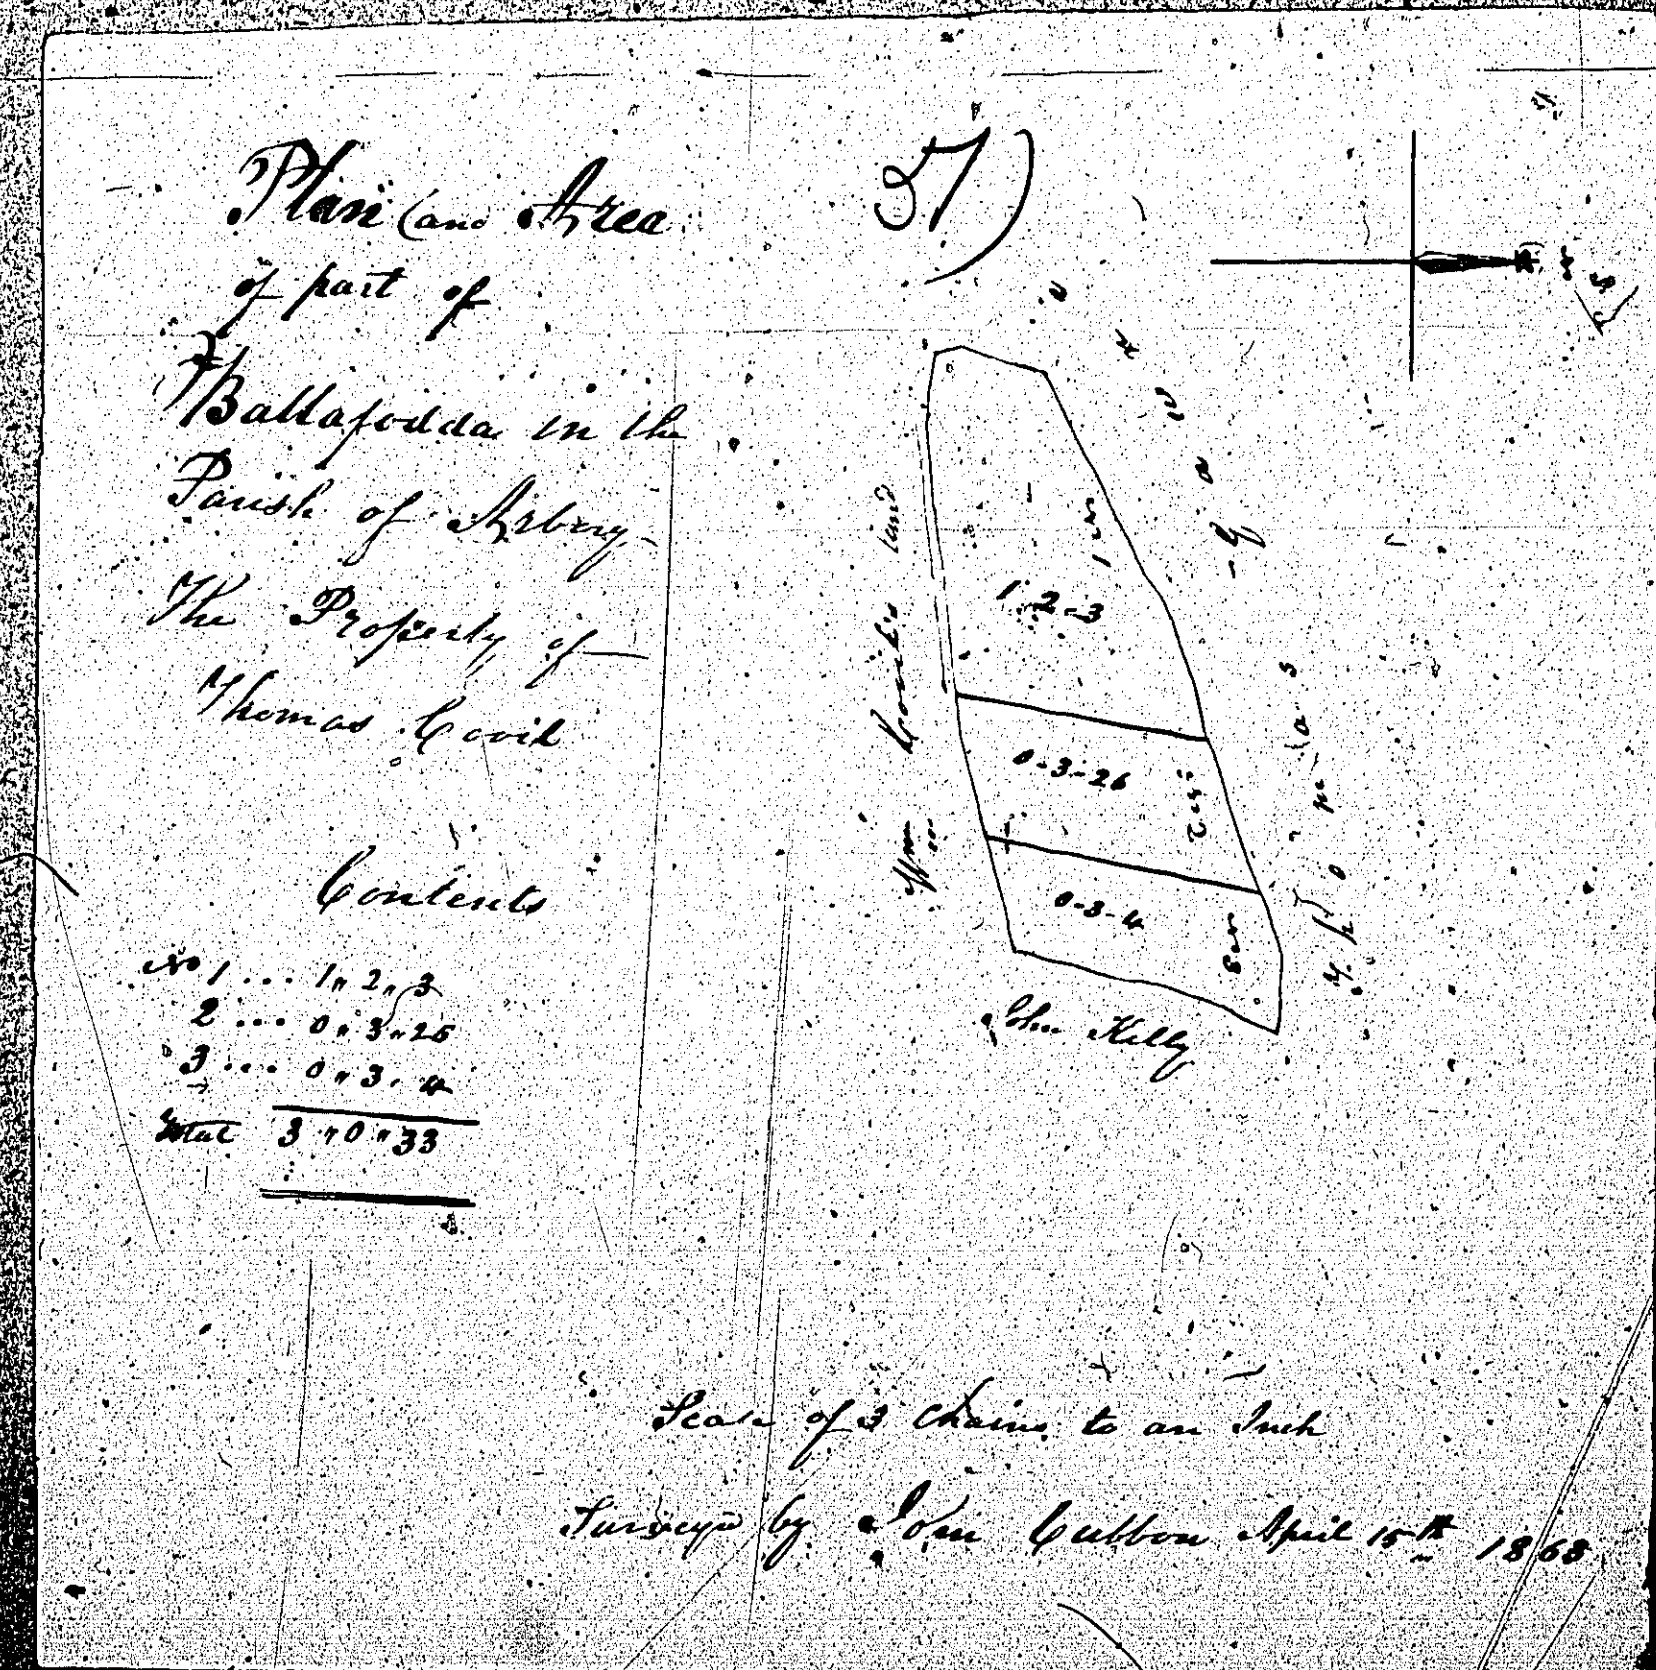 37)
Plan and Area
of part of
Ballafodda in the
Parish of Arbory
The Property of
Thomas Covil
Contents
No 1 ... 1 " 2 " 3
2 ... 0 " 3 " 26
3 ... 0 " 3 " 4
Total 3 " 0 " 33
1
1-2-3
0-3-26
0-3-4
Wm land
John Kelly
Scale of 3 Chains to an Inch
Surveyd by John Cubbon April 15th 1868